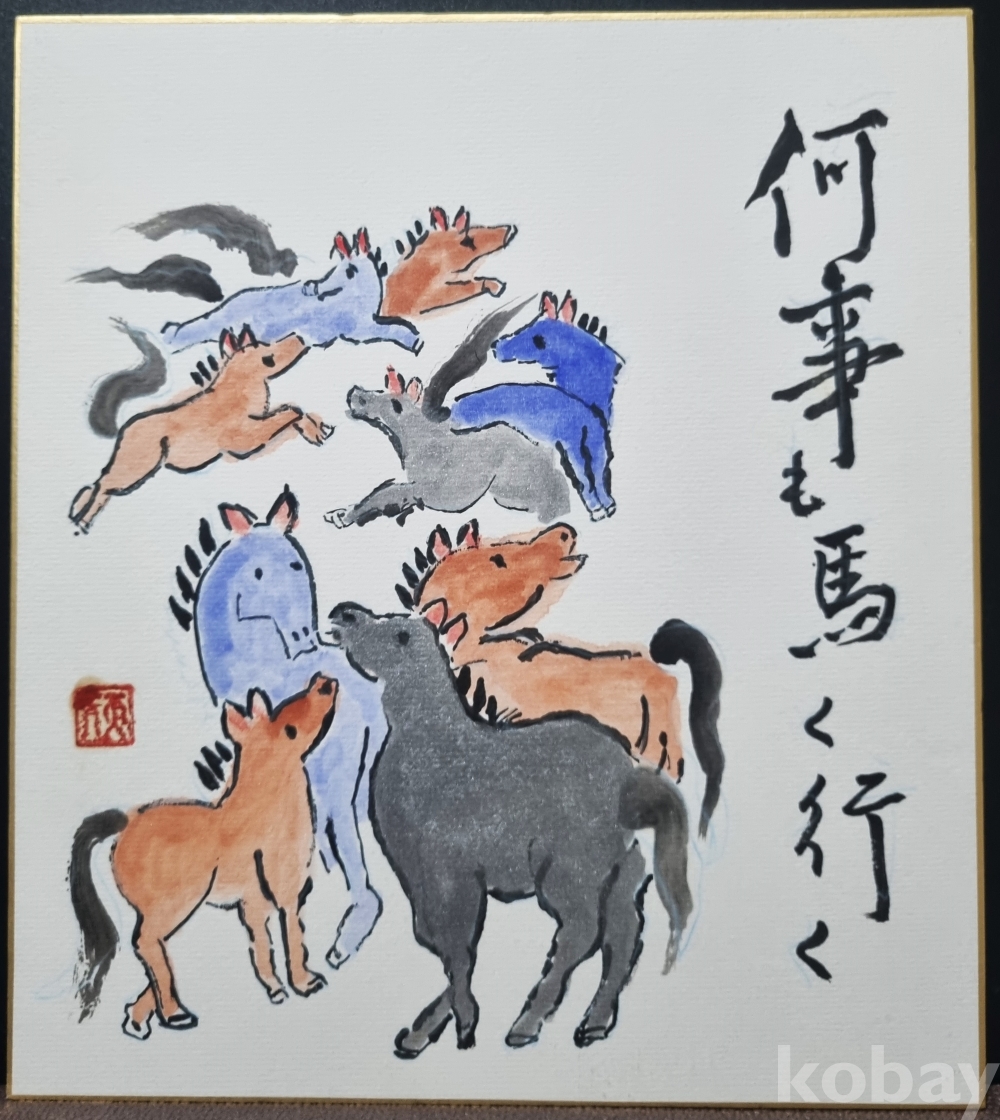 何事も馬く行く
kobay